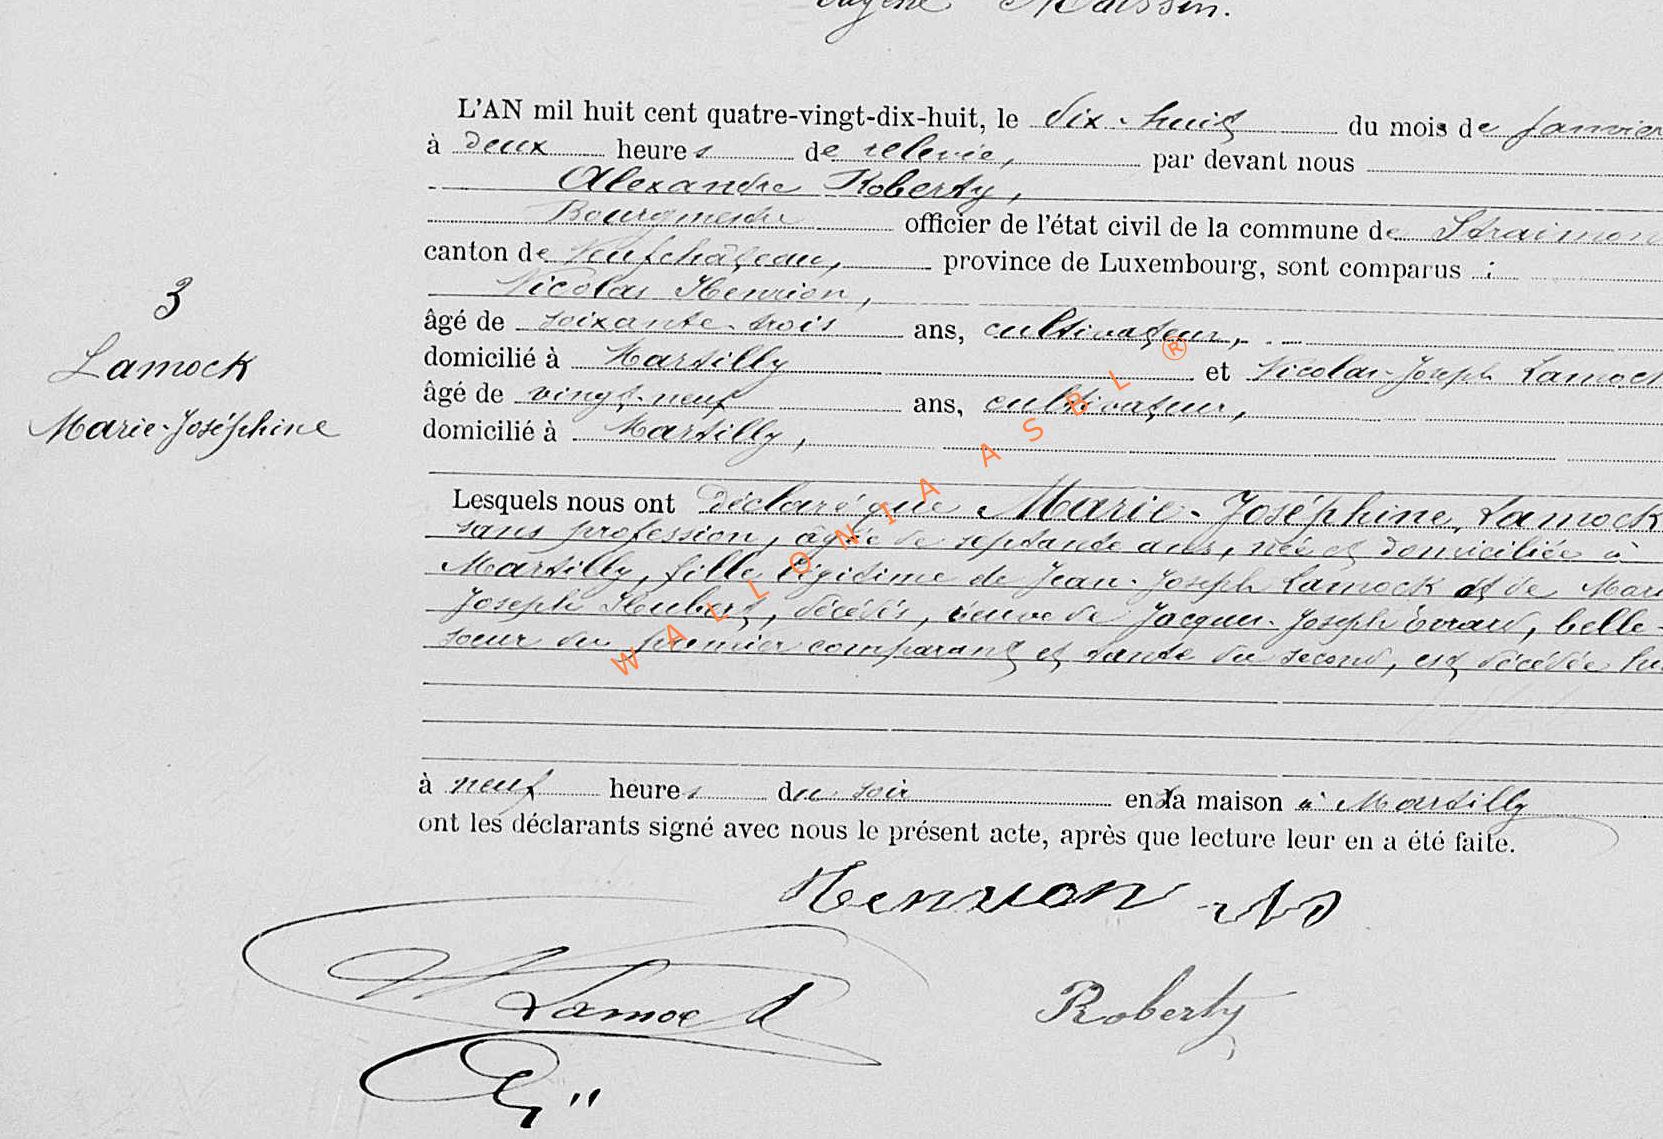 Eugène Maissin.
L'AN mil huit cent quatre-vingt-dix-huit, le dix-huit du mois de Janvier
à deux heures de relevée, par devant nous
Alexandre Roberty,
Bourgmestre officier de l'état civil de la commune de Straimon
canton de Neufchâteau, province de Luxembourg, sont comparus :
Nicolas Henrion,
âgé de soixante-trois ans, cultivateur,
domicilié à Martilly et Nicolas-Joseph Lamock
âgé de vingt-neuf ans, cultivateur,
domicilié à Martilly,
3
Lamock
Marie-Joséphine
Lesquels nous ont déclaré que Marie-Joséphine Lamock
sans profession, âgée de septante ans, née et domiciliée à
Martilly, fille légitime de Jean-Joseph Lamock et de Marie
Joseph Hubert, décédés, veuve de Jacques-Joseph Evrard, belle-
sœur du premier comparant et tante du second, est décédée hi
à neuf heures du soir en sa maison à Martilly
ont les déclarants signé avec nous le présent acte, après que lecture leur en a été faite.
Henrion
Lamock
Roberty
WALLONIA ASBL ®